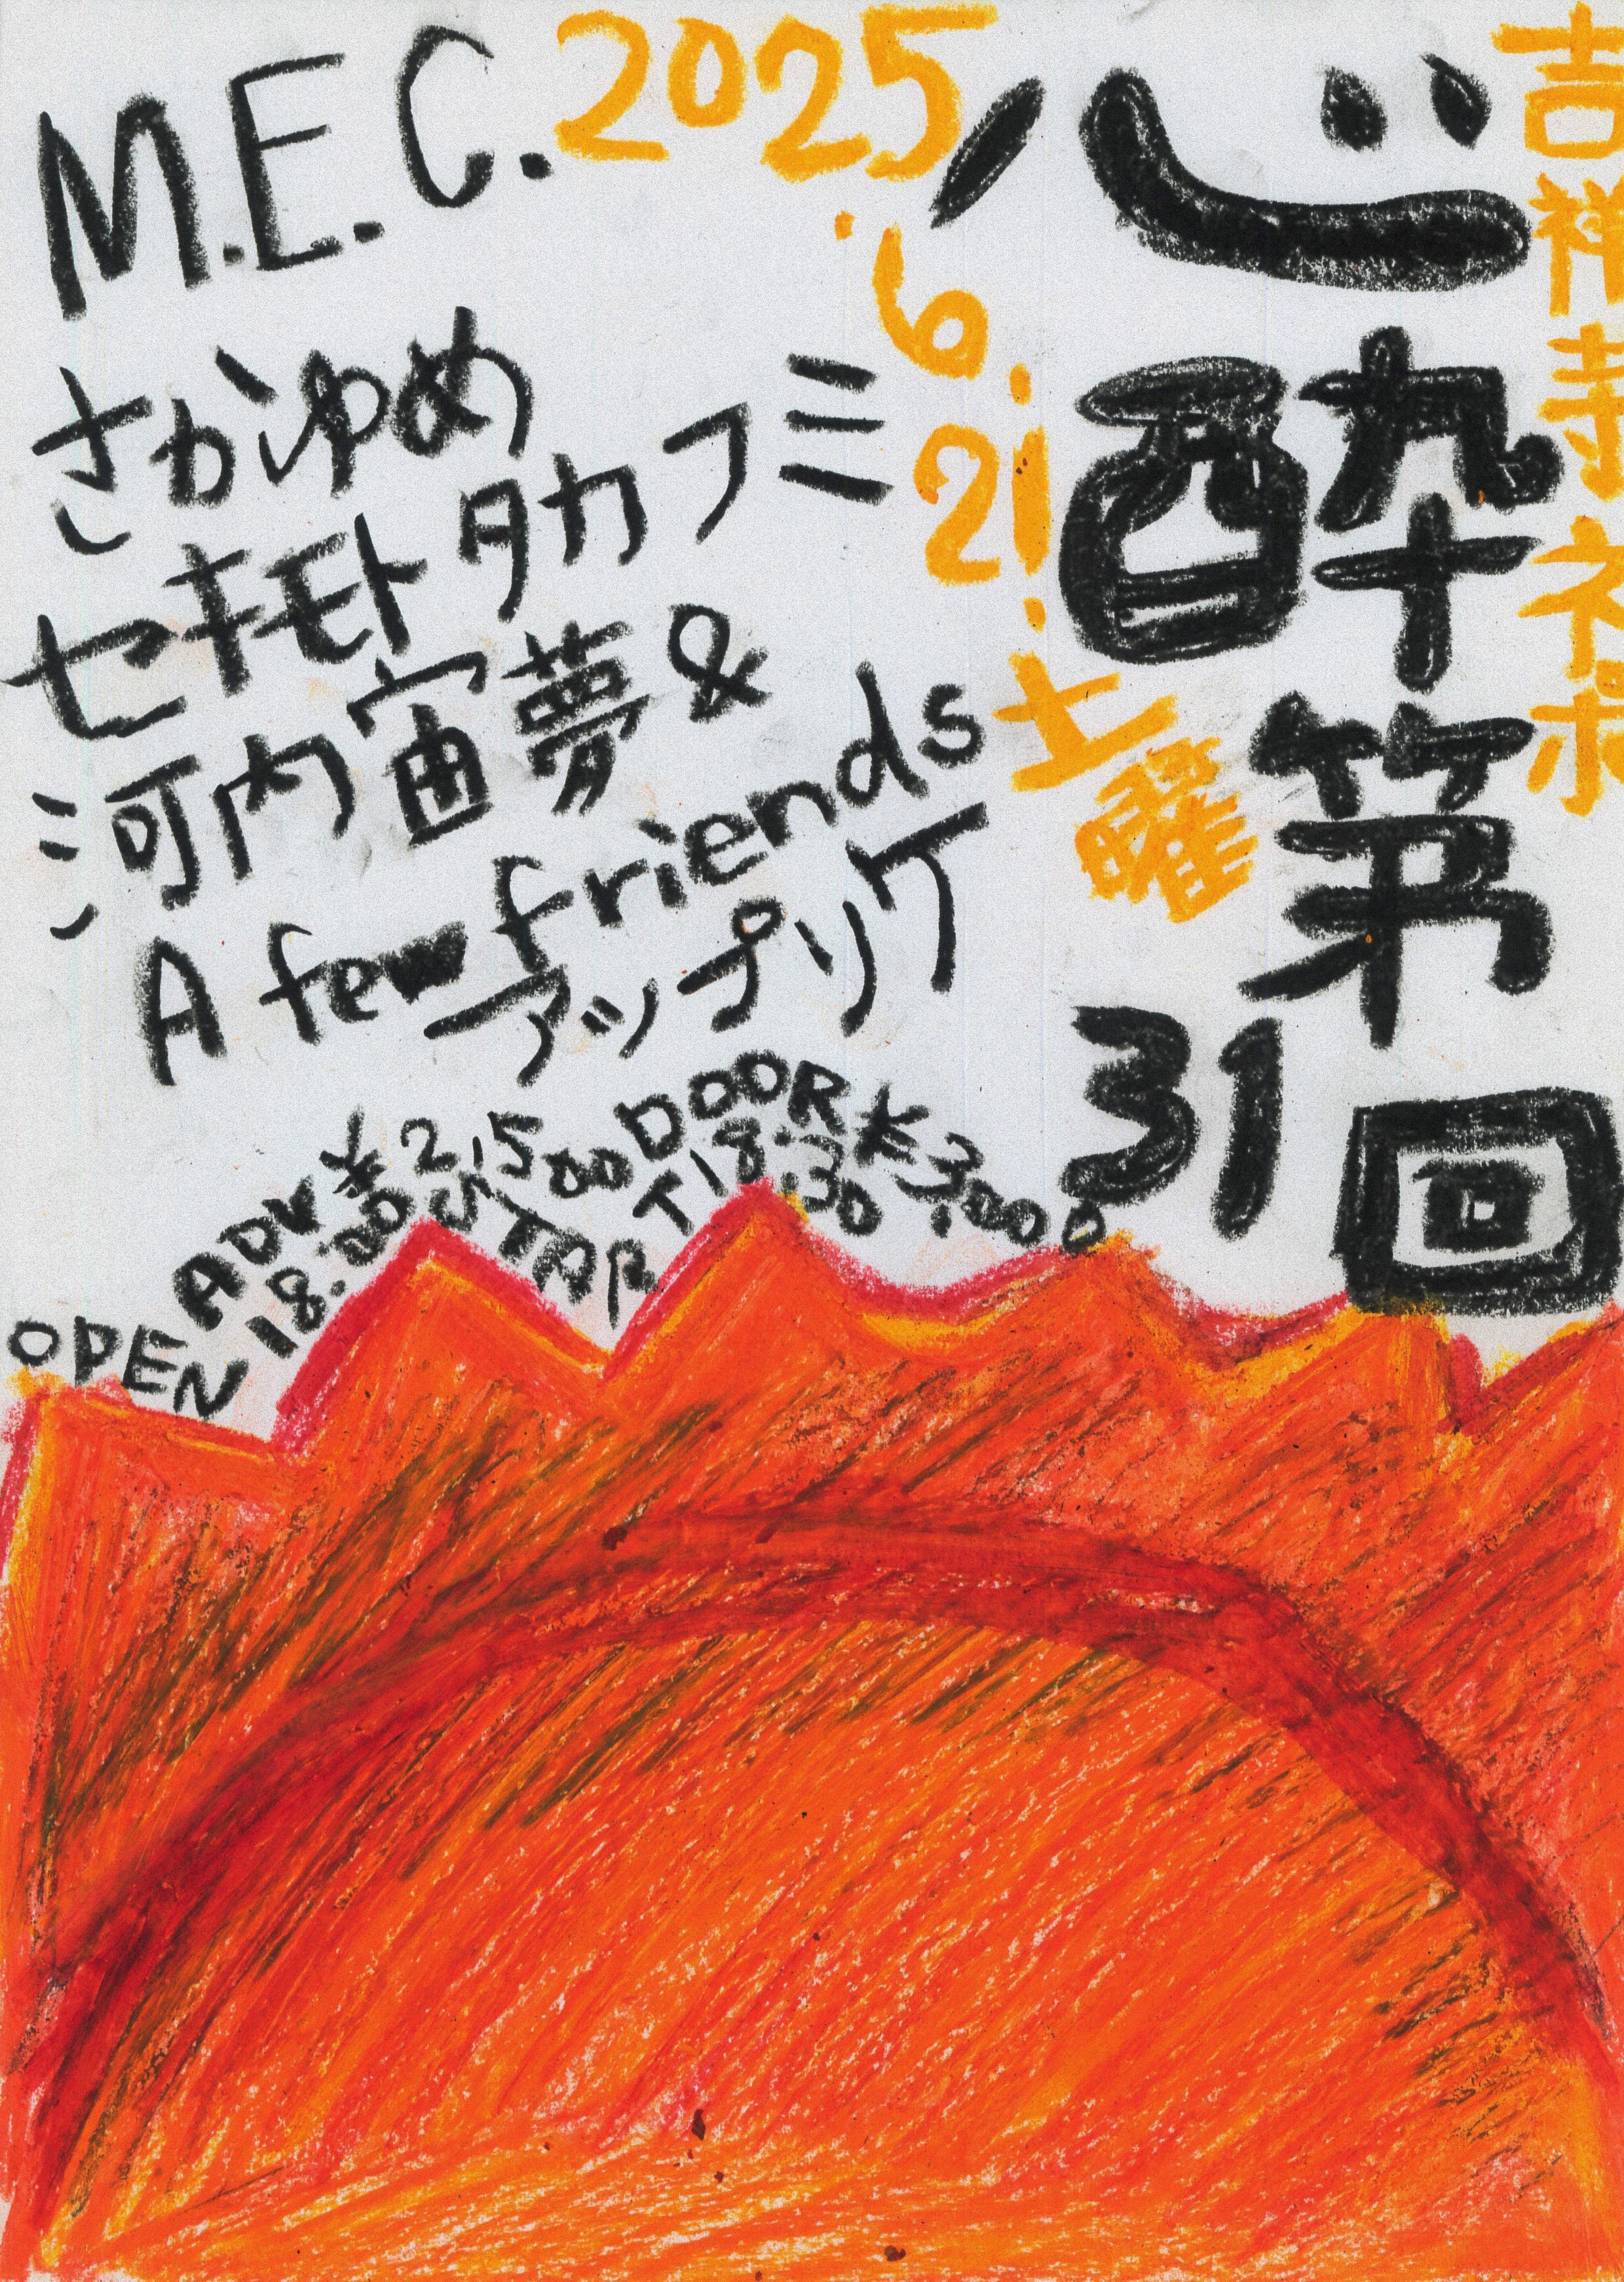 吉祥寺ネポ
心酔
第
31回
2025.6.21.土曜
M.E.C.
さかゆめ
セキモトタカフミ
河内宙夢&
A few friends
アップリケ
ADV ¥2,500 DOOR ¥3,000
OPEN 18:00 START 18:30